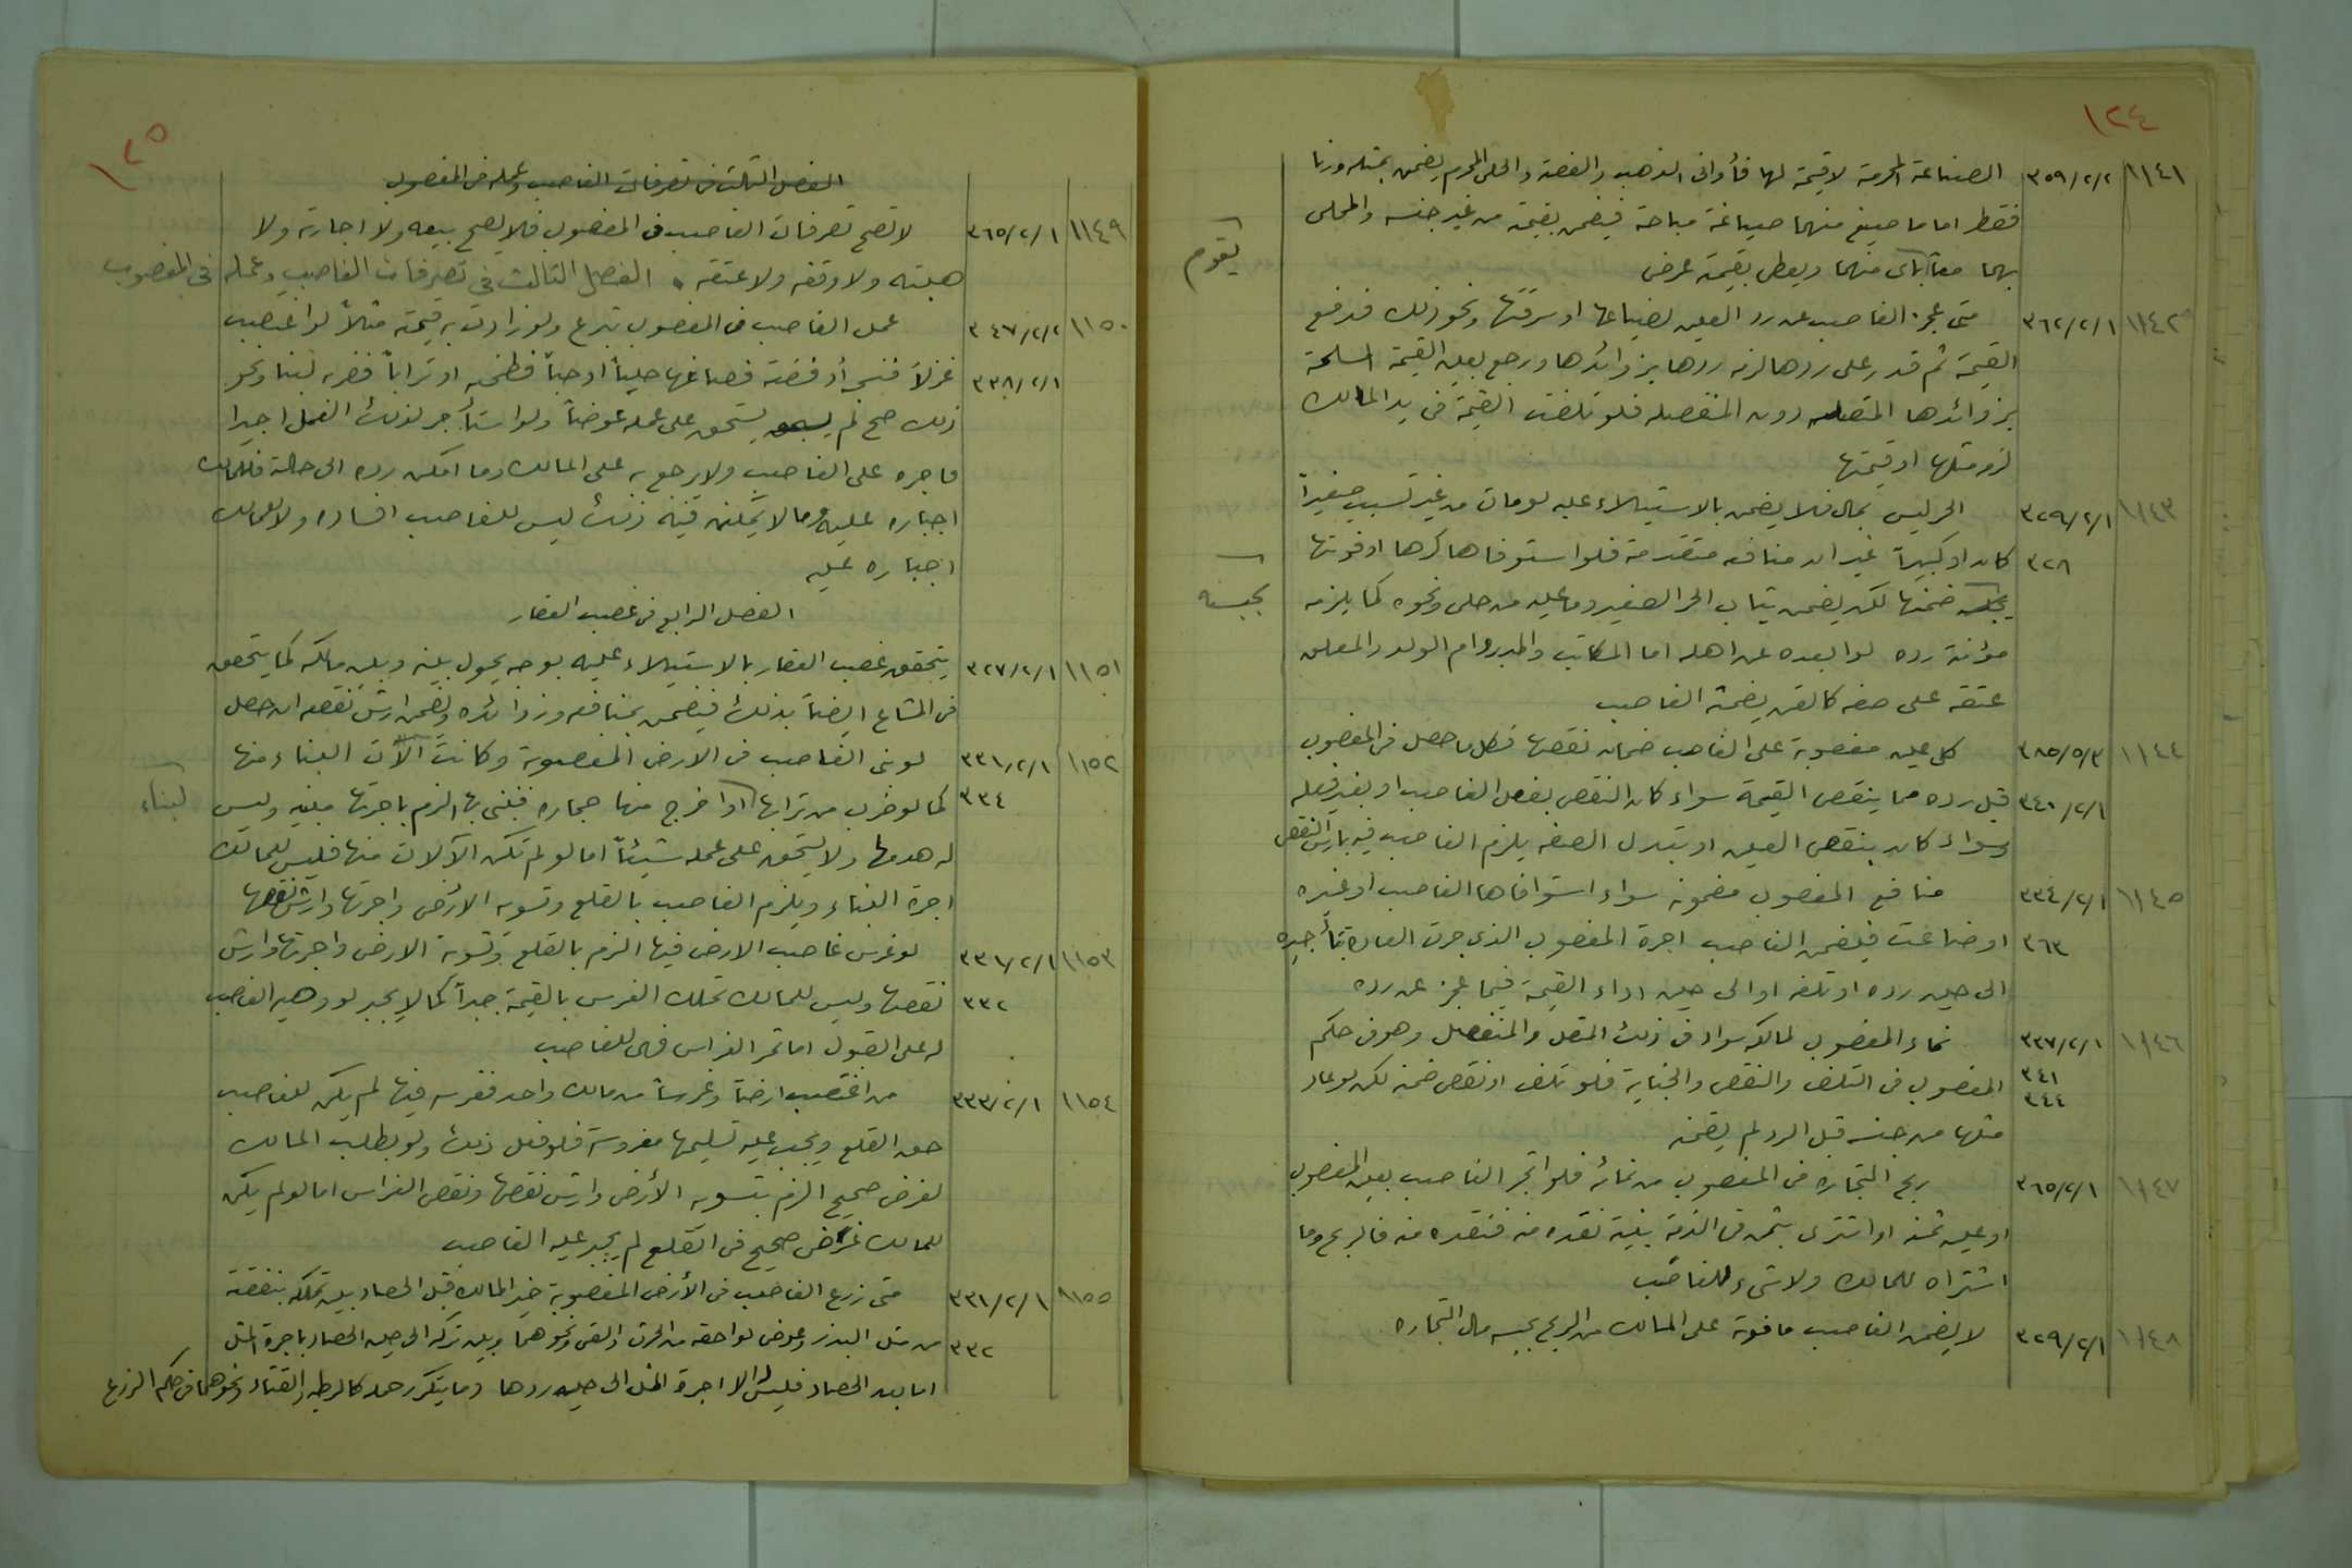 ١٢٤
١١٤١ ٣٥٩/٢/٢ الصناعة المحرمة لا قيمة لها فأواني الذهب والفضة والحلي المحرم يضمن بمثله وزنا
فقط اما ما صيغ منهما صياغة مباحة فيضمن بقيمته من غير جنسه والمحلى
بهما معاً بأي منهما ويعطى بقيمته عرض
يقوم
١١٤٢ ٣٦٢/٢/١ متى عجز الغاصب عن رد العين لضياعها او سرقتها ونحو ذلك فدفع
القيمة ثم قدر على ردها لزمه ردها بزوائدها ورجع بعين القيمة المسلمة
بزوائدها المتصله دون المنفصله فلو تلفت القيمة في يد المالك
لزم مثلها او قيمتها
١١٤٣ ٣٢٩/٢/١ الحر ليس بمال فلا يضمن بالاستيلاء عليه لو مات من غير تسبب صغيراً
٣٢٨ كان او كبيراً غير ان منافعه متقدمة فلو استوفاها كرها او فوتها
ضمنها لكن يضمن ثياب الحر الصغير وما عليه من حلي ونحوه كما يلزمه
بحبسه
مؤنة رده لو ابعده عن اهله اما المكاتب والمدبر وام الولد والمعلق
عتقه على صفه كالقن يضمنه الغاصب
١١٤٤ ٣٨٥/٥/٣ كل عين مغصوبة على الغاصب ضمان نقصها فكل ما حصل في المغصوب
٣٤٠/٢/١ قبل رده مما ينقص القيمة سواء كان النقص بفعل الغاصب او بغير فعله
وسواء كان بنقص العين او بتبدل الصفه يلزم الغاصب فيه بارش النقص
١١٤٥ ٣٣٤/٢/١ منافع المغصوب مضمونه سواء استوفاها الغاصب او غيره
٣٦٣ او ضاعت فيضمن الغاصب اجرة المغصوب الذي جرت العادة بتأجيره
الى حين رده او تلفه او الى حين اداء القيمة فيما عجز عن رده
١١٤٦ ٣٣٧/٢/١ نماء المغصوب لمالكه سواء في ذلك المتصل والمنفصل وهو في حكم
٣٤١ المغصوب في التلف والنقص والجناية فلو تلف او نقص ضمنه لكن لو عاد
٣٤٤
مثلها من جنسه قبل الرد لم يضمنه
١١٤٧ ٣٦٥/٢/١ ربح التجاره في المغصوب من نمائه فلو اتجر الغاصب بعين المغصوب
او عين ثمنه او اشترى بثمن في الذمة بنية نقده منه فنقده منه فالربح وما
اشتراه للمالك ولا شيء للغاصب
١١٤٨ ٣٢٩/٢/١ لا يضمن الغاصب ما فوته على المالك من الربح بحبسه مال التجاره
١٢٥
الفصل الثالث في تصرفات الغاصب وعمله في المغصوب
١١٤٩ ٣٦٥/٢/١ لا تصح تصرفات الغاصب في المغصوب فلا يصح بيعه ولا اجارته ولا
هبته ولا وقفه ولا عتقه . الفصل الثالث في تصرفات الغاصب وعمله في المغصوب
١١٥٠ ٣٤٧/٢/٢ عمل الغاصب في المغصوب تبرع ولو زادت به قيمته مثلاً لو اغتصب
٣٣٨/٢/١ غزلاً فنسجه أو فضة فصاغها حلياً او حباً فطحنه او تراباً فضربه لبنا ونحو
ذلك صح ثم لم يستحق على عمله عوضاً ولو استأجر لذلك العمل اجيرا
فاجره على الغاصب ولا يرجع به على المالك وما امكن رده الى حالته فللمالك
اجباره عليه وما لا يمكن فيه ذلك ليس للغاصب افساده ولا للمالك
اجباره عليه
الفصل الرابع في غصب العقار
١١٥١ ٣٢٧/٢/١ يتحقق غصب العقار بالاستيلاء عليه بوجه يحول بينه وبين مالكه كما يتحقق
في المشاع ايضاً بذلك فيضمن بمنافعه وزوائده ويضمن ارش نقصه ان حصل
١١٥٢ ٣٣١/٢/١ لو بنى الغاصب في الارض المغصوبة وكانت آلات البناء منها
٣٣٤ كما لو ضرب من ترابها او اخرج منها حجاره فبنى بها الزم باجرتها مبنيه وليس
لبناء
له هدمها ولا يستحق على عمله شيئاً اما لو لم تكن الآلات منها فليس للمالك
اجرة البناء ويلزم الغاصب بالقلع وتسويه الأرض واجرتها وارش نقصها
١١٥٣ ٣٣١/٢/١ لو غرس غاصب الارض فيها الزم بالقلع وتسوية الارض واجرتها وارش
٣٣٢ نقصها وليس للمالك تملك الغرس بالقيمة جبراً كما لا يجبر لو وهبه الغاصب
له على القبول اما ثمر الغراس فهي للغاصب
١١٥٤ ٣٣٣/٢/١ من اغتصب ارضاً وغرساً من مالك واحد فغرسه فيها لم يكن للغاصب
حق القلع ويجب عليه تسليمها مغروسة فلو فعل ذلك ولو بطلب المالك
لغرض صحيح الزم بتسويه الأرض وارش نقصها ونقص الغراس اما لو لم يكن
للمالك غرض صحيح في القلع لم يجبر عليه الغاصب
١١٥٥ ٣٣١/٢/١ متى زرع الغاصب في الأرض المغصوبة خير المالك قبل الحصاد بين تملكه بنفقته
٣٣٢ من مثل البذر وعوض لواحقه من الحرث والسقي ونحوهما وبين تركه الى حين الحصاد باجرة المثل
اما بعد الحصاد فليس له الا اجرة المثل الى حين ردها وما يتكرر حمله كالرطبه والقثاء ونحوهما في حكم الزرع